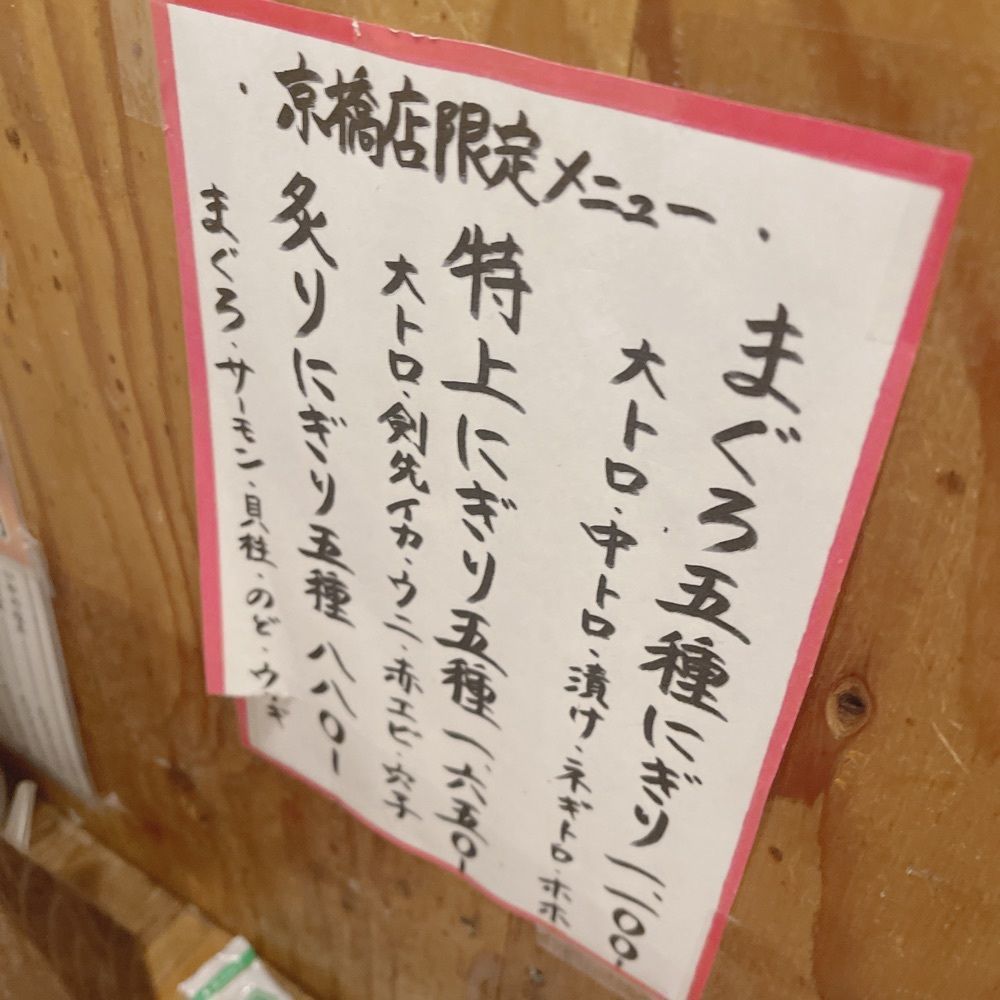 ・京橋店限定メニュー・
まぐろ五種にぎり一、一〇〇-
大トロ・中トロ・漬け・ネギトロ・ホホ
特上にぎり五種一、六五〇-
大トロ・剣先イカ・ウニ・赤エビ・穴子
炙りにぎり五種八八〇-
まぐろ・サーモン・貝柱・のど・ウナギ